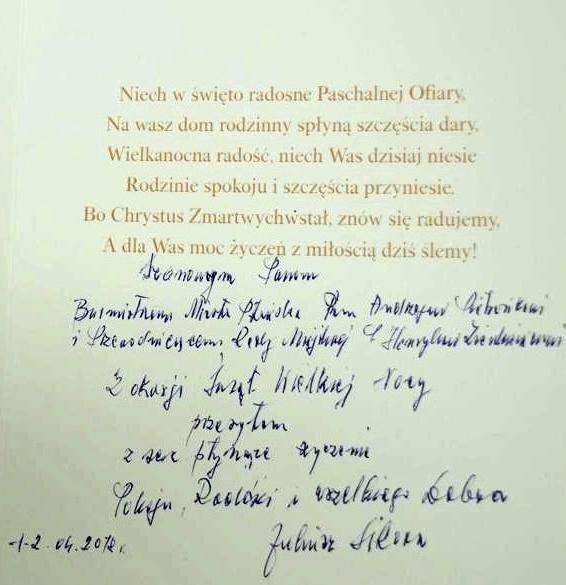 Niech w święto radosne Paschalnej Ofiary,
Na wasz dom rodzinny spłyną szczęścia dary,
Wielkanocna radość, niech Was dzisiaj niesie
Rodzinie spokoju i szczęścia przyniesie.
Bo Chrystus Zmartwychwstał, znów się radujemy,
A dla Was moc życzeń z miłością dziś ślemy!
Szanownym Panom
Burmistrzowi Miasta Pan Andrzejowi
i Przewodniczącemu Rady Miejskiej P. Henrykowi
Z okazji Świąt Wielkiej Nocy
przesyłam
z serc płynące życzenia
Pokoju, Radości i wszelkiego Dobra
Juliusz
1-2.04.2018r.